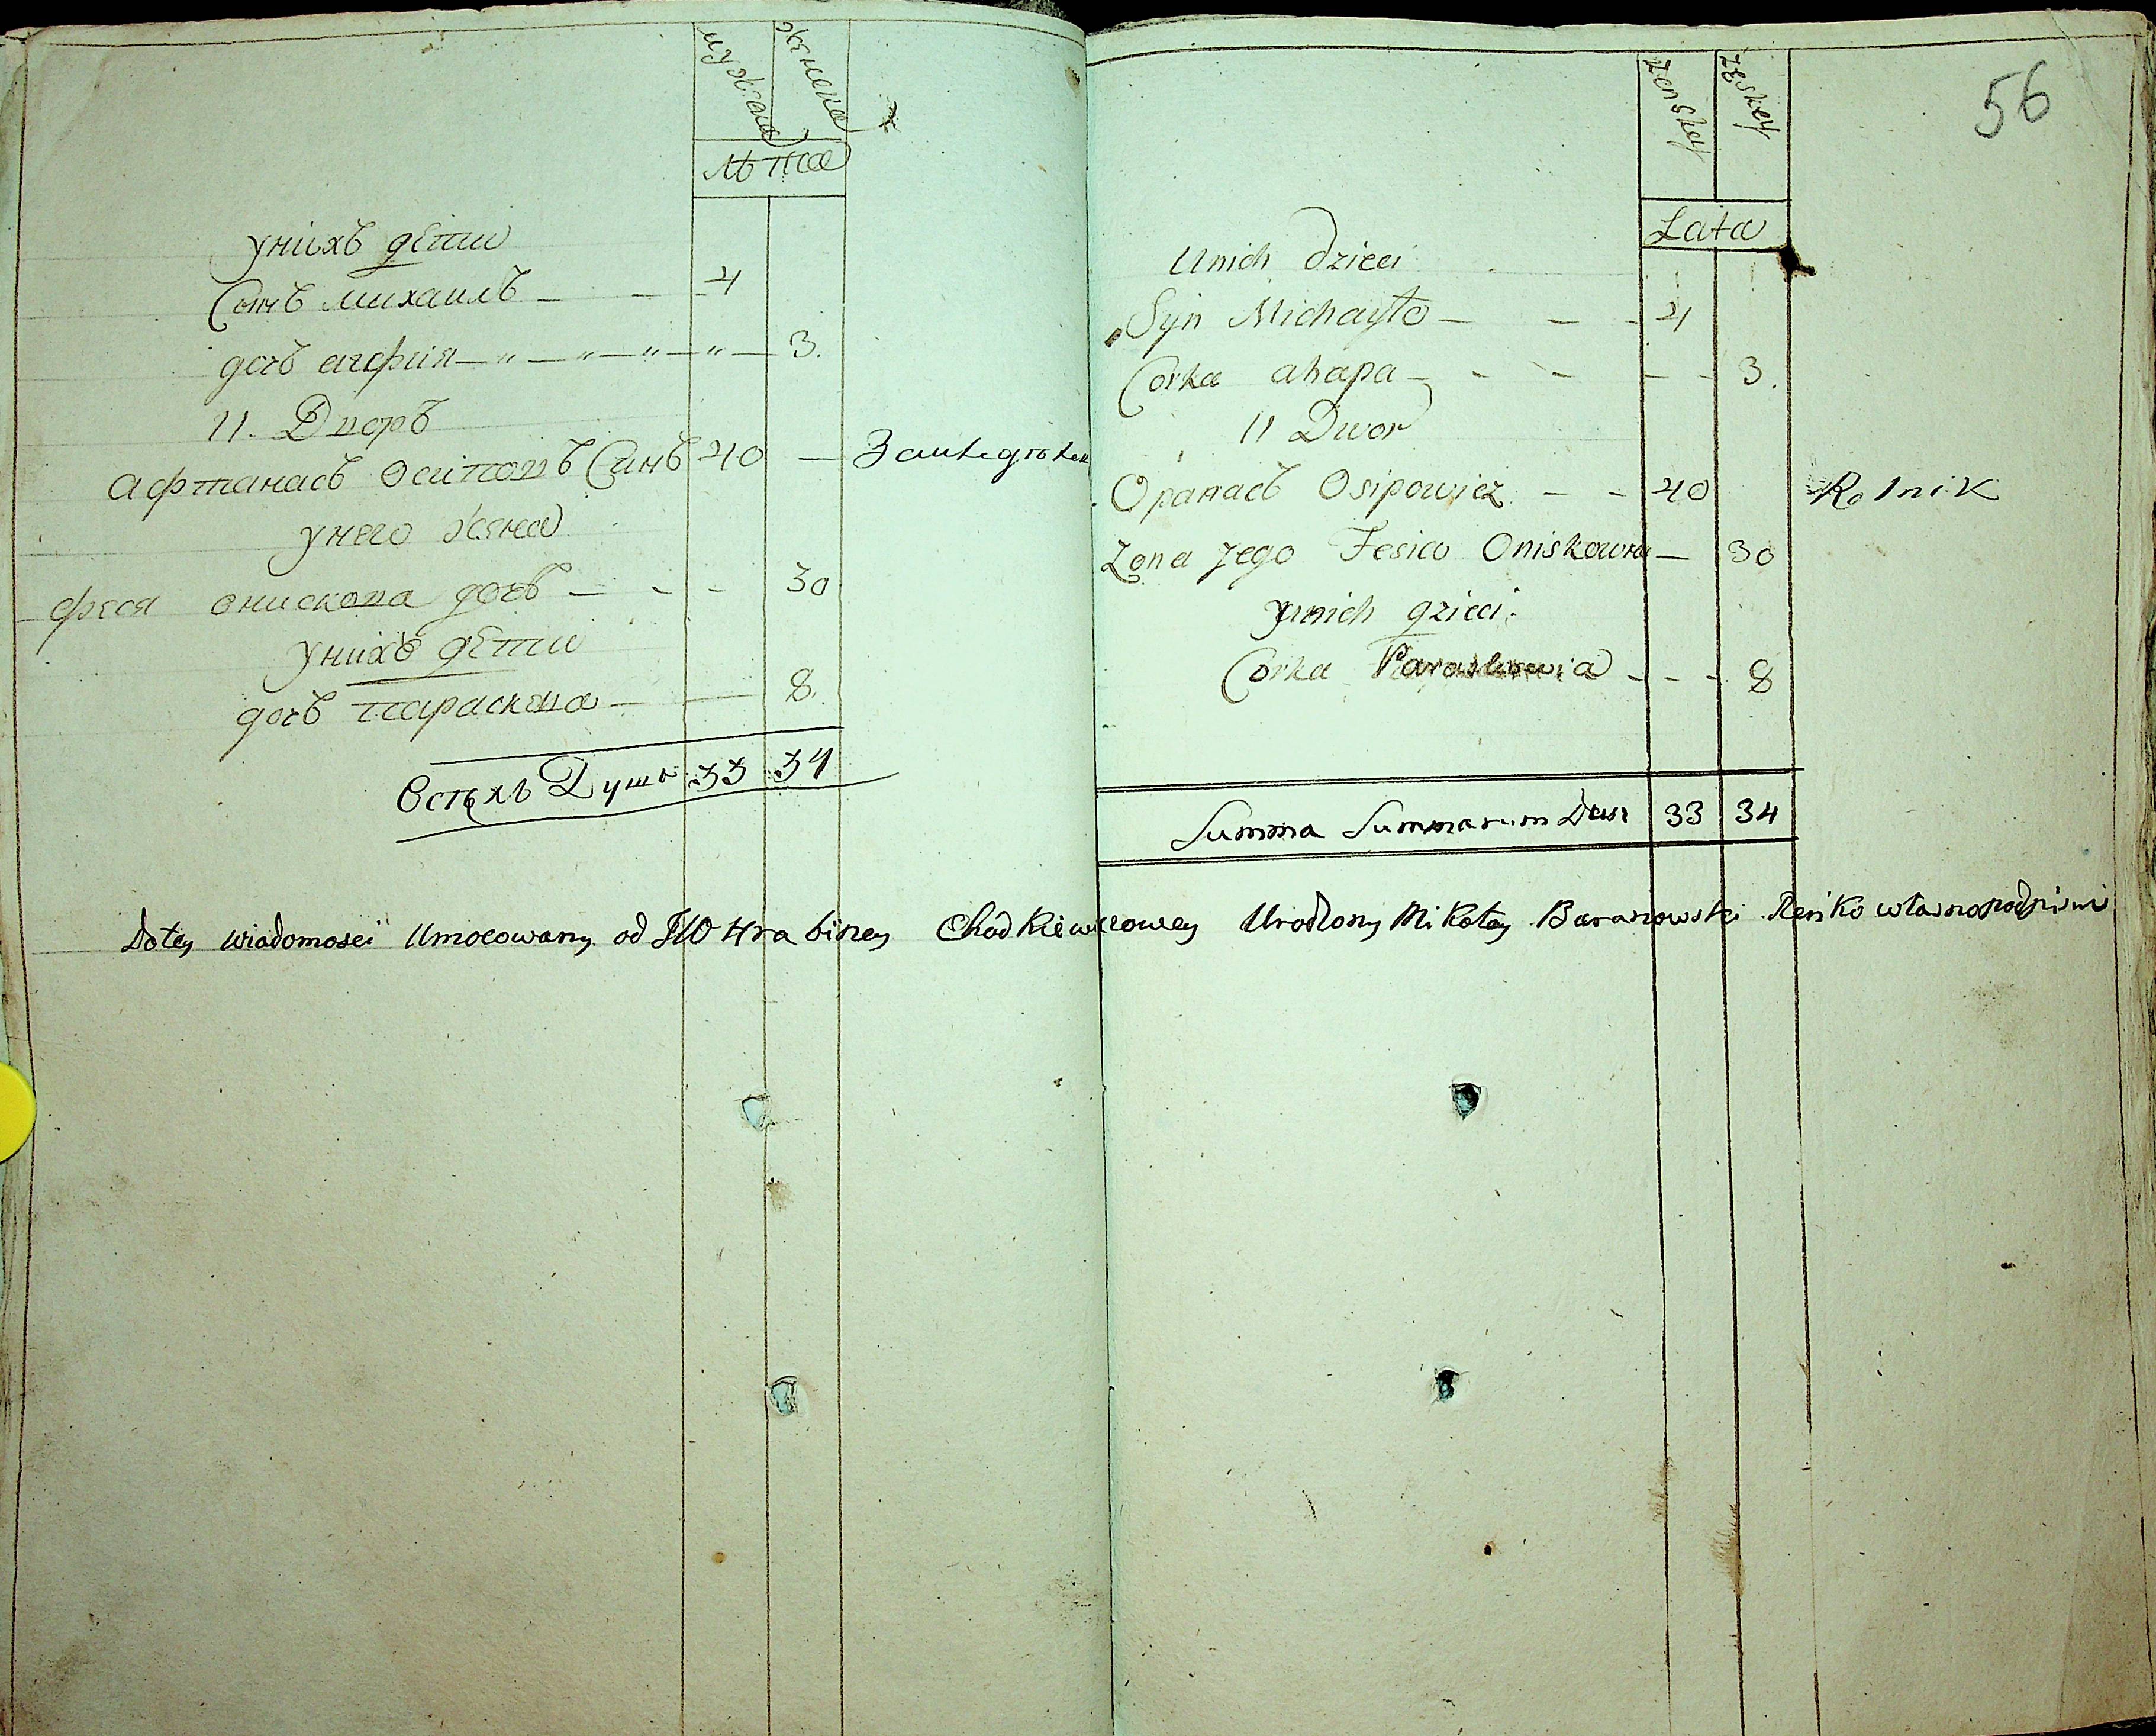 мужска женска
лѣта
унихъ дѣти
Сынъ михаилъ — — 4
дочь агфия — " — " — " — " — 3.
11. Дворъ
Афтанасъ Осиповъ Синъ 40 —
унего жена
феся онискова дочь — - - 30
унихъ дѣти
дочь параскева — — 8.
Всѣхъ Душъ 33 34
56
Zenskey Zeskey
Lata
Unich Dzieci
Syn Michayło — — - 4
Corka ahapa - - - — - 3.
11 Dwor
Opanacъ Osipowicz — - 40 Rolnik
Zona Jego Fesia Oniskowna — 30
yunich dzieci.
Corka Paraskowia - - - 8
Summa Summarum Dusz 33 34
Dotey wiadomosci Umocowany od JW Hrabiney Chodkiewiczowey Urodzony Mikołay Baranowski Ręnko własnopodpisuie